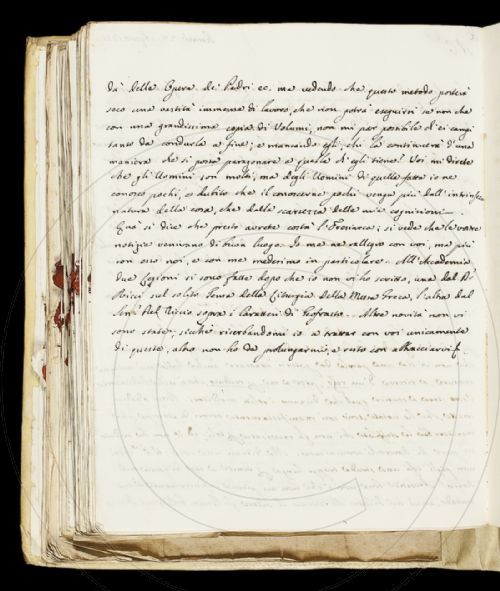 da' delle Opere de' Padri ec. ma vedendo che questo metodo porterà
seco una vastità immensa di lavoro, che non potrà eseguirsi se non che
con una grandissima copia di Volumi, non mi par possibile ch'ei campi
tanto da condurla a fine; e mancando egli, chi la continuerà d'una
maniera che si possa paragonare a quella ch'egli tiene? Voi mi direte
che gli Uomini son molti; ma degli Uomini di quella fatta io ne
conosco pochi, e dubito che il conoscerne pochi venga più dall'intrinseca
natura della cosa, che dalla scarsezza delle mie cognizioni.
Quà si dice che presto avrete costà l' ; si vede che le vostre
notizie venivano di buon luogo. Io me ne rallegro con voi, ma più
con esso noi, e con me medesimo in particolare. All'Accademia
due Lezioni si sono fatte dopo che io non vi ho scritto, una dal Dr
Ricci sul solito Tema della Liturgia della Messa Greca, l'altra dal
Sen. Del Riccio sopra i Caratteri di Teofrasto. Altre novità non vi
sono state; sicchè riserbandomi io a trattar con voi unicamente
di queste, altro non ho da prolungarmi, e resto con abbracciarvi